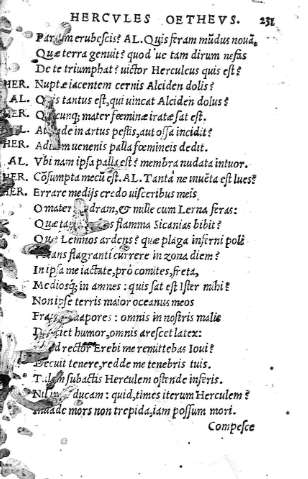 HERCVLES OETHEVS. 231
Parum erubescis? AL. Quis feram mũdus nouã,
Quæ terra genuit? quod'ue tam dirum nefas
De te triumphat? uictor Herculeus quis est?
HER. Nuptæ iacentem cernis Alciden dolis?
AL. Quis tantus est, qui uincat Alciden dolus?
HER. Quicunq; mater fœminæ iratæ sat est.
AL. At unde in artus pestis, aut ossa incidit?
HER. Aditum uenenis palla fœmineis dedit.
AL. Vbi nam ipsa palla est? membra nudata intuor.
HER. Cõsumpta mecũ est. AL. Tanta ne inuẽta est lues?
HER. Errare medijs credo uisceribus meis
O mater hydram, & mille cum Lerna feras:
Quæ flamma Sicanias bibit?
Quæ Lemnos ardens? que plaga inferni poli
flagranti currere in zona diem?
In ipsa me iactate, prò comites, freta,
Mediosq; in amnes: quis sat est Ister mihi?
Non ipse terris maior oceanus meos
uapores: omnis in nostris malis
humor, omnis arescet latex:
rector Erebi me remittebas Ioui?
Decuit tenere, redde me tenebris tuis.
Talem subactis Herculem ostende inferis.
Nil ducam: quid, times iterum Herculem?
Inuade mors non trepida, iam possum mori.
Compesce